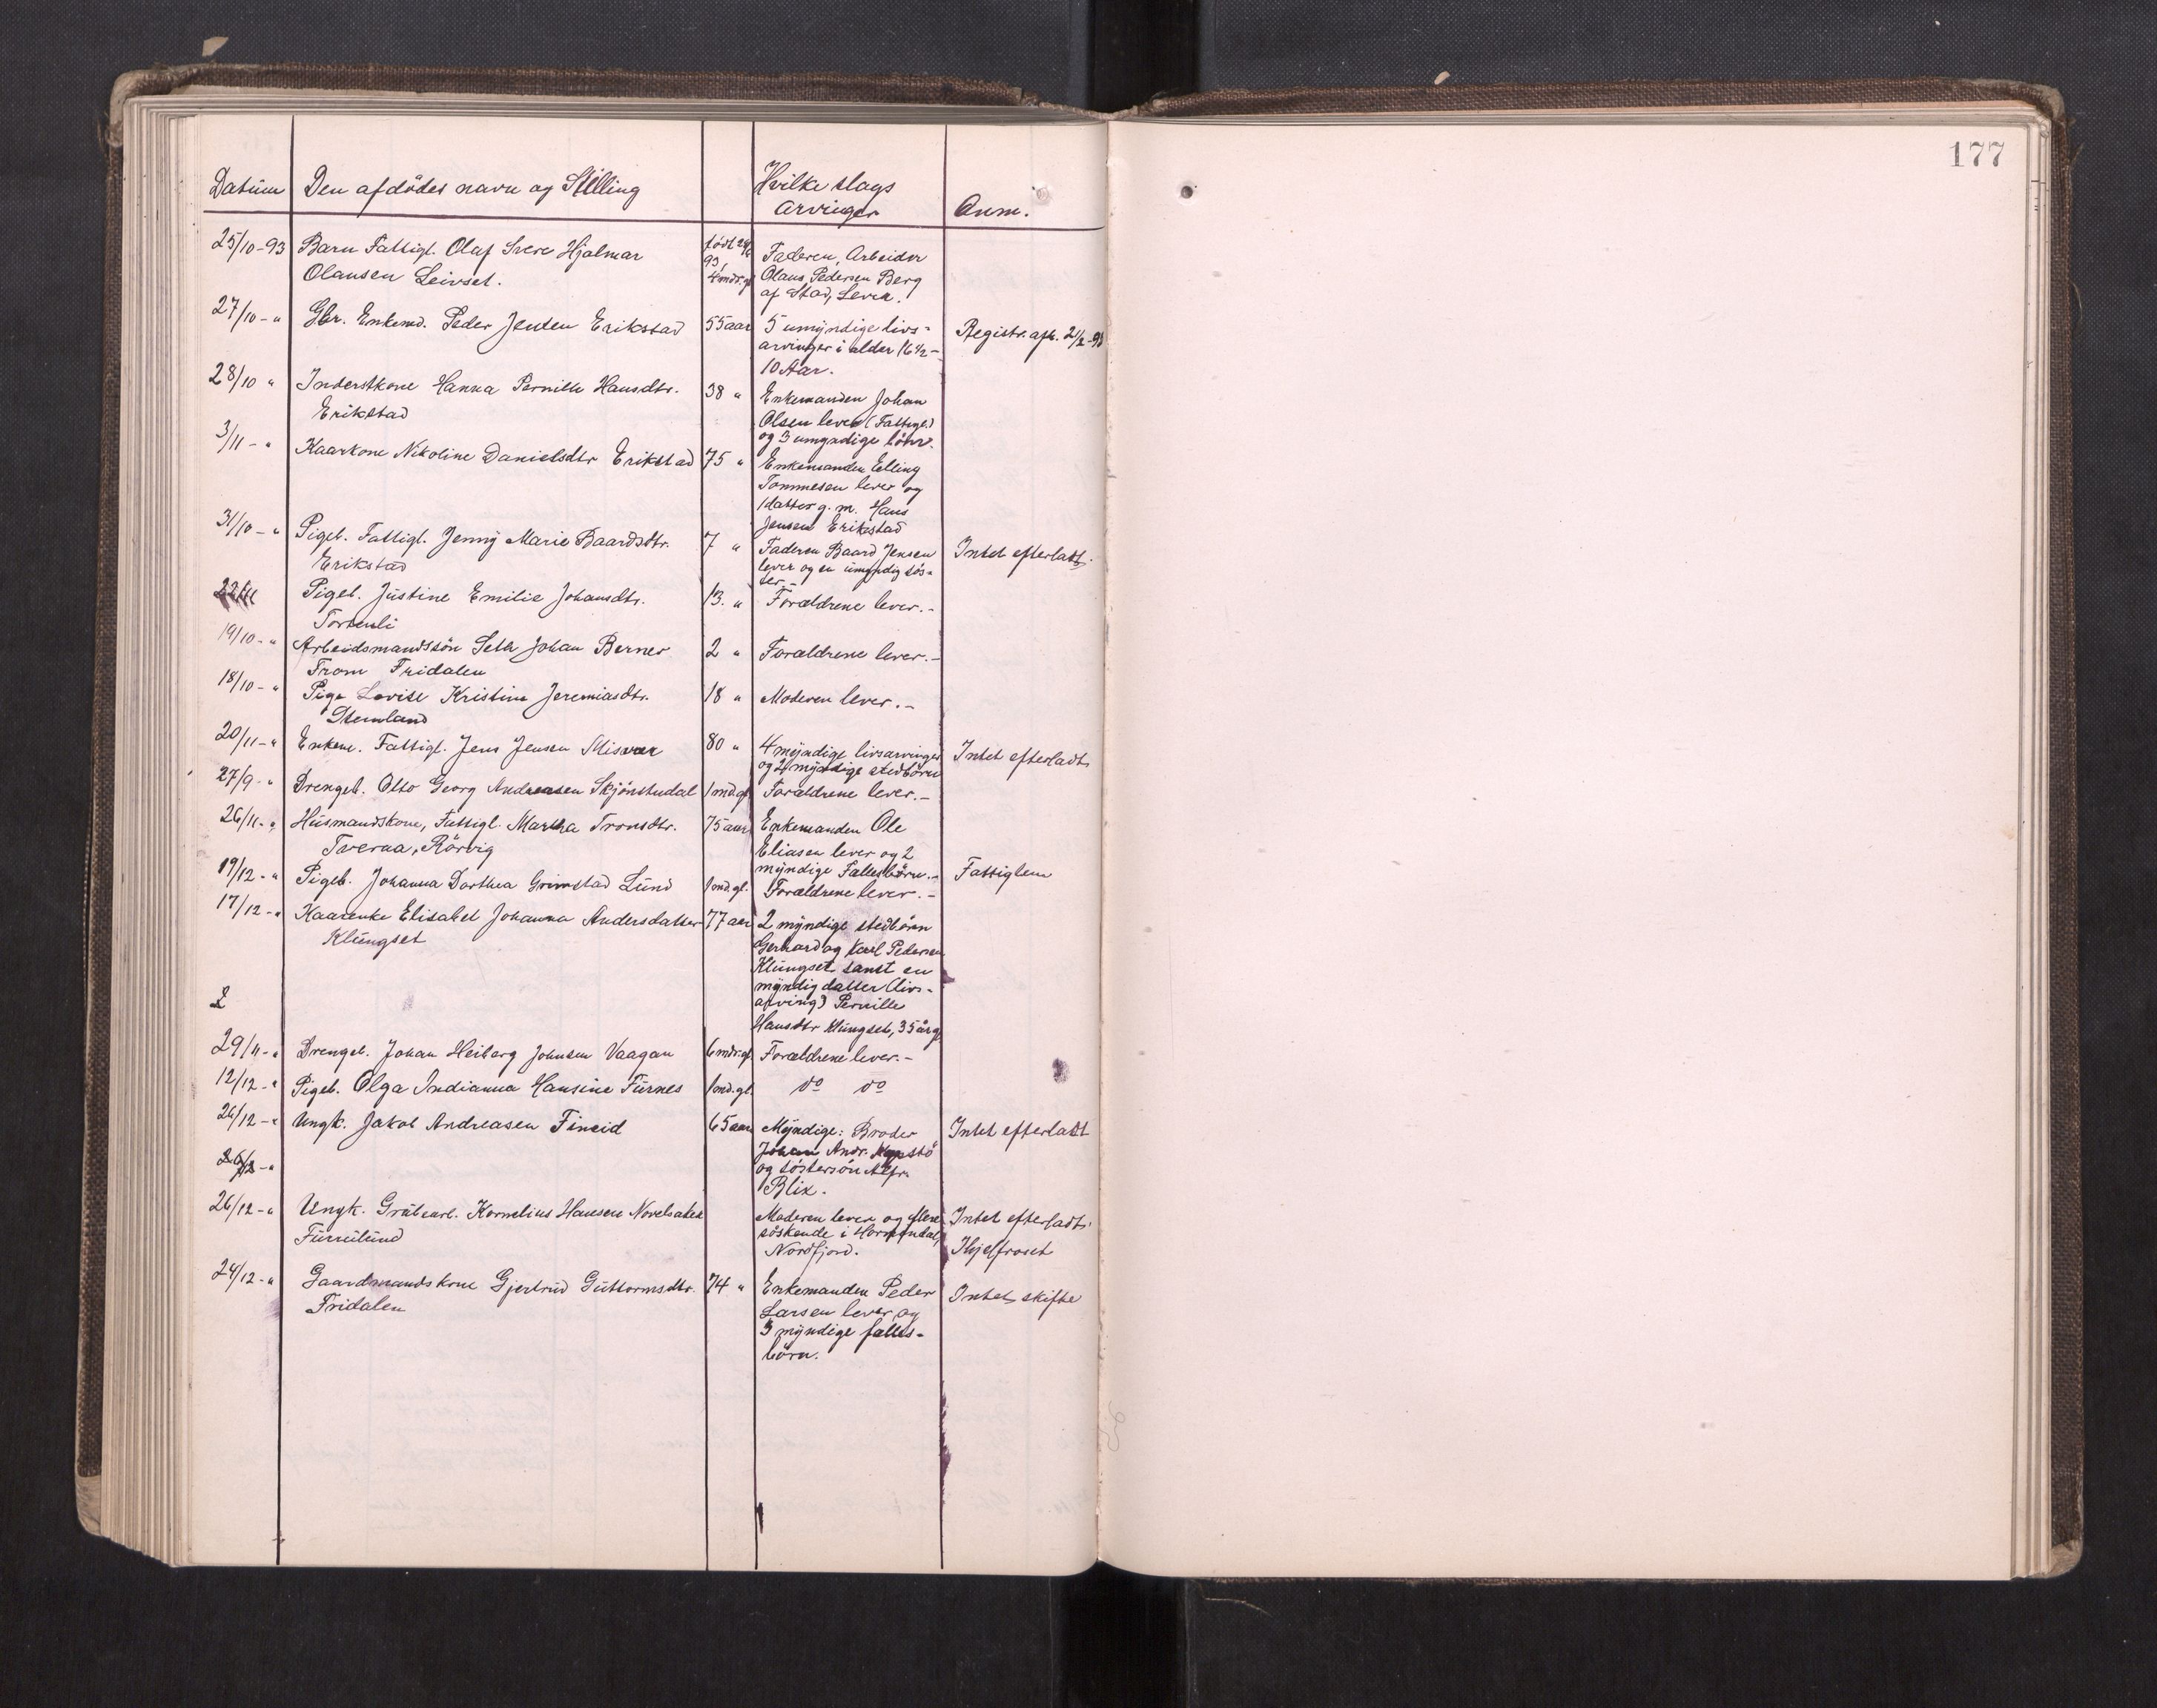 177
Datum Den afdödes navn og Stilling Hvilke slags Anm.
arvinger
25/10-93 Barn Fattigl. Olaf Sverre Hjalmar født 24/6 Faderen, Arbeider
Olausen Leivset. 93, 4 mdr. gl Olaus Pedersen Berg
af Stad, Lever.
27/10-" Gbr. Enkemd. Peder Jensen Erikstad 55 aar 5 umyndige livs-
arvinger i alder 16 1/2 - Registr. afh. 2/2-93
10 Aar.
28/10 " Inderstkone Hanna Pernille Hansdtr. 38 " Enkemanden Johan
Erikstad Olsen lever (Fattigl.)
og 3 umyndige börn.
3/11-" Kaarkone Nikoline Danielsdtr Erikstad 75 " Enkemanden Elling
Tommesen lever og
1 datter g. m. Hans
Jensen Erikstad
31/10-" Pigeb. Fattigl. Jenny Marie Baardsdtr. 7 " Faderen Baard Jensen Intet efterladt.
Erikstad lever og en umyndig sös-
ter.-
Pigeb. Justine Emilie Johansdtr. 13. " Forældrene lever.-
Tortenli
19/10-" Arbeidsmandssön Seth Johan Berner 2 " Forældrene lever.-
From Fridalen
18/10-" Pige Lovise Kristine Jeremiasdtr. 18 " Moderen lever.-
Stemland
20/11-" Enkem. Fattigl. Jens Jensen Misvær 80 " 4 myndige livsarvinger Intet efterladt
og 2 myndige stedbörn
27/9-" Drengeb. Otto Georg Andreasen Skjönstudal 1 md. gl. Forældrene lever.-
26/11-" Husmandskone, Fattigl. Martha Tronsdtr. 75 aar Enkemanden Ole
Tveraa, Rörvig Eliasen lever og 2
myndige Fællesbörn.- Fattiglem
19/12-" Pigeb. Johanna Dorthea Grimstad Lund 1 md. gl. Forældrene lever.-
17/12-" Kaarenke Elisabet Johanna Andersdatter 77 aar 2 myndige stedbörn
Klungset Gerhard og Karl Pedersen
Klungset samt en
myndig datter (livs-
arving) Pernille
Hansdtr Klungset, 35 år g.
29/11-" Drengeb. Johan Heiberg Johnsen Vaagan 6 mdr. gl. Forældrene lever.-
12/12-" Pigeb. Olga Indianna Hansine Furnes 1 md. gl. do do
26/12-" Ungk. Jakob Andreasen Fineid 65 aar Myndige: Broder Intet efterladt
Johan Andr.
og söstersön Alfr.
Blix.
26/12-" Ungk. Grubearb. Kornelius Hansen Furulund Moderen lever og flere Intet efterladt.
söskende i Hornindal,
Nordfjord. Ihjelfroset
24/12-" Gaardmandskone Gjertrud Guttormsdtr. 74 " Enkemanden Peder Intet skifte
Fridalen Larsen lever og
3 myndige fælles-
börn.